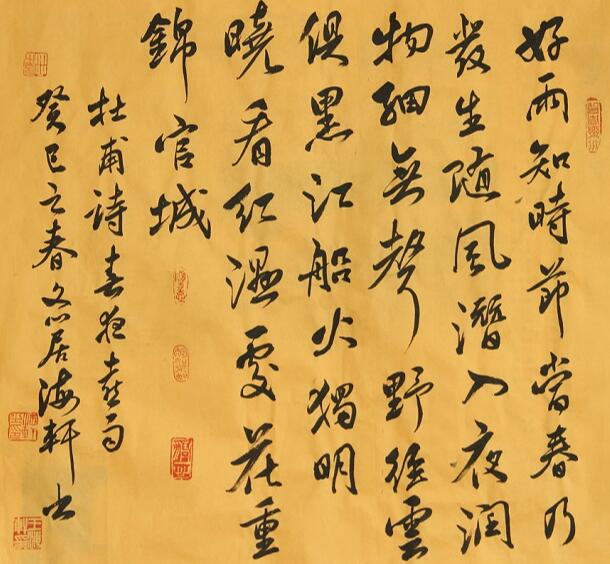 好雨知時節當春乃
發生随風潛入夜润
物細無聲野径雲
俱黑江船火獨明
曉看红濕處花重
錦官城
杜甫詩春夜喜雨
癸巳之春文心居海軒书